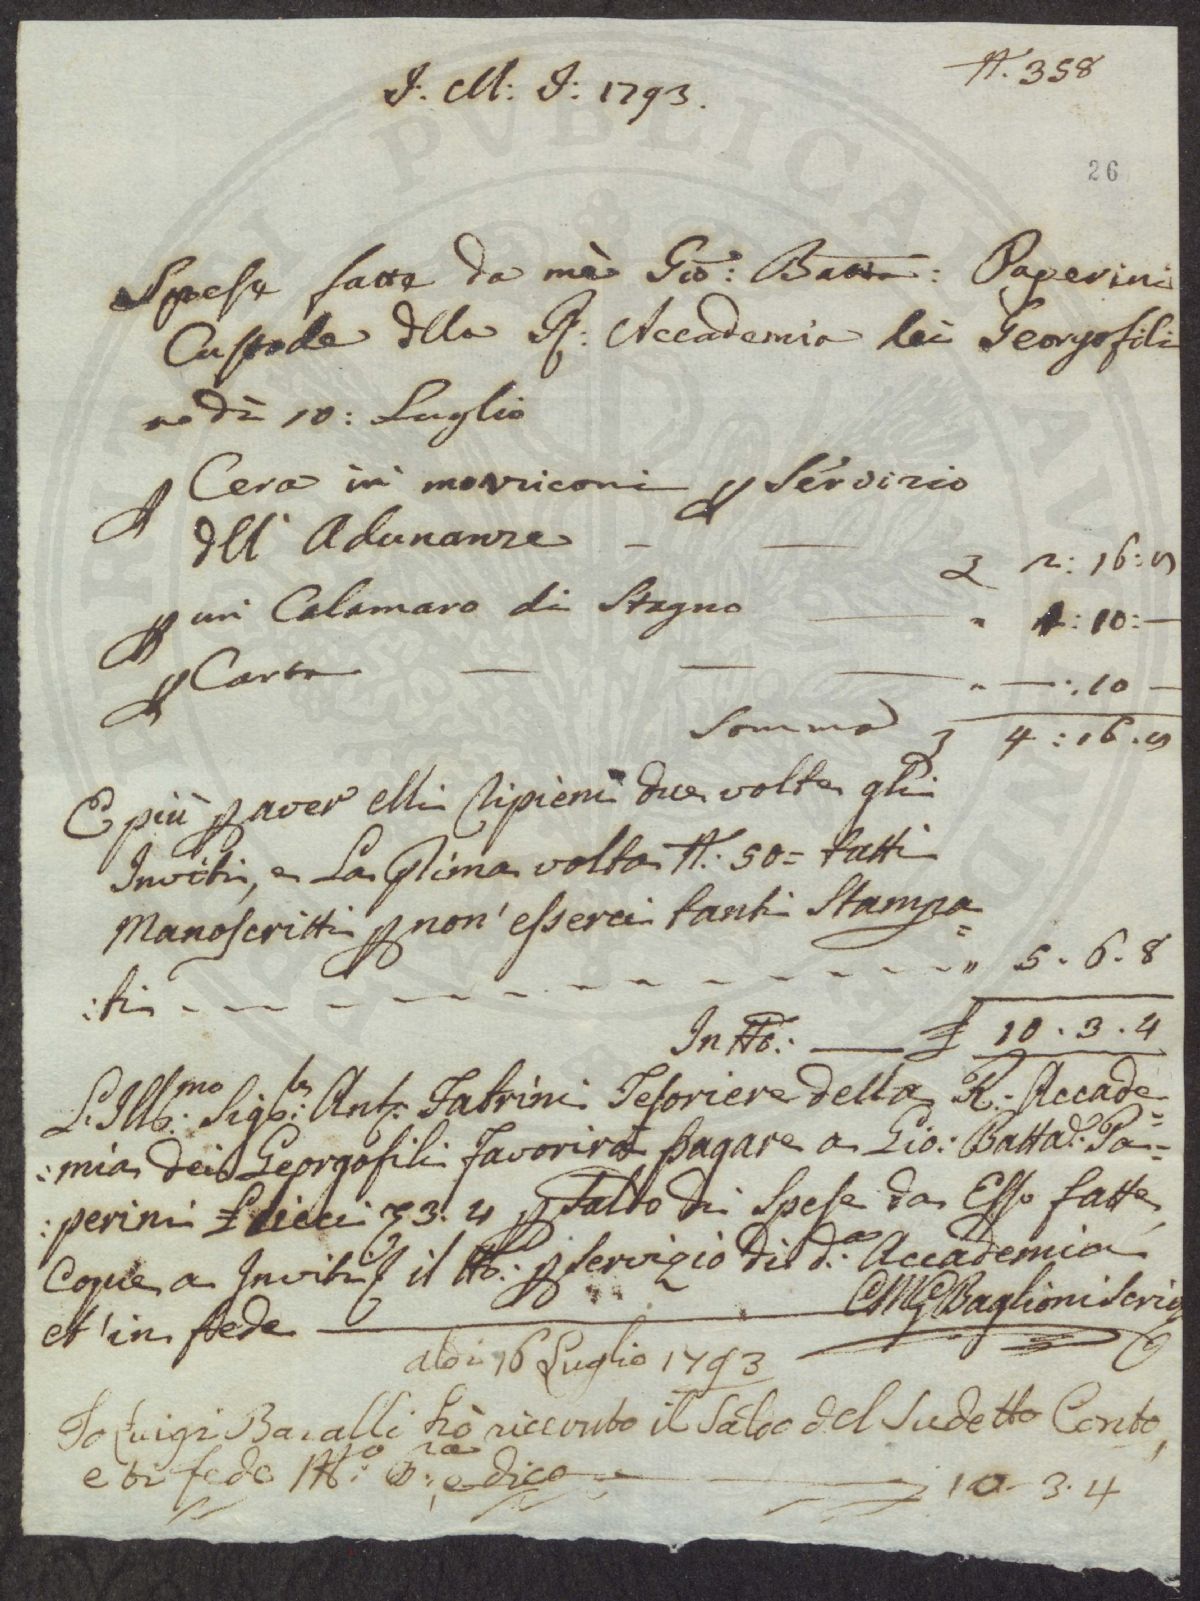 N. 358
J: M: J: 1793.
26
Spese fatte da me Gio: Batta: Paperini
Custode dlla R: Accademia dei Georgofili
10: Luglio
p Cera in moriconi p Servizio
dll' Adunanze — — 2: 16:
p un Calamaro di Stagno — " 1: 10: —
p Carta — — — " —: 10 —
Somma 4: 16.
E più p aver ripieni due volte gli
Inviti, e La p̃ima volta N: 50= tutti
Manoscritti p non' esserci tanti Stampa=
:ti - - - - - - - - - - - - " 5. 6. 8
In tto: — £ 10. 3. 4
L'Illmo: Sigre: Ant: Fabrini Tesoriere della R: Accade=
:mia dei Georgofili favorirà pagare a Gio: Batta: Pa=
:perini £ dieci 3. 4 p Saldo di Spese da Esso fatte,
Copie a Inviti il tto: p servizio di da: Accademia
et in fede — Baglioni Scriv
adi 16 Luglio 1793
Io Luigi Bacalli hò ricevuto il Saldo del Sudetto Conto,
e in fede Mo: Pra: e dico — 10. 3. 4